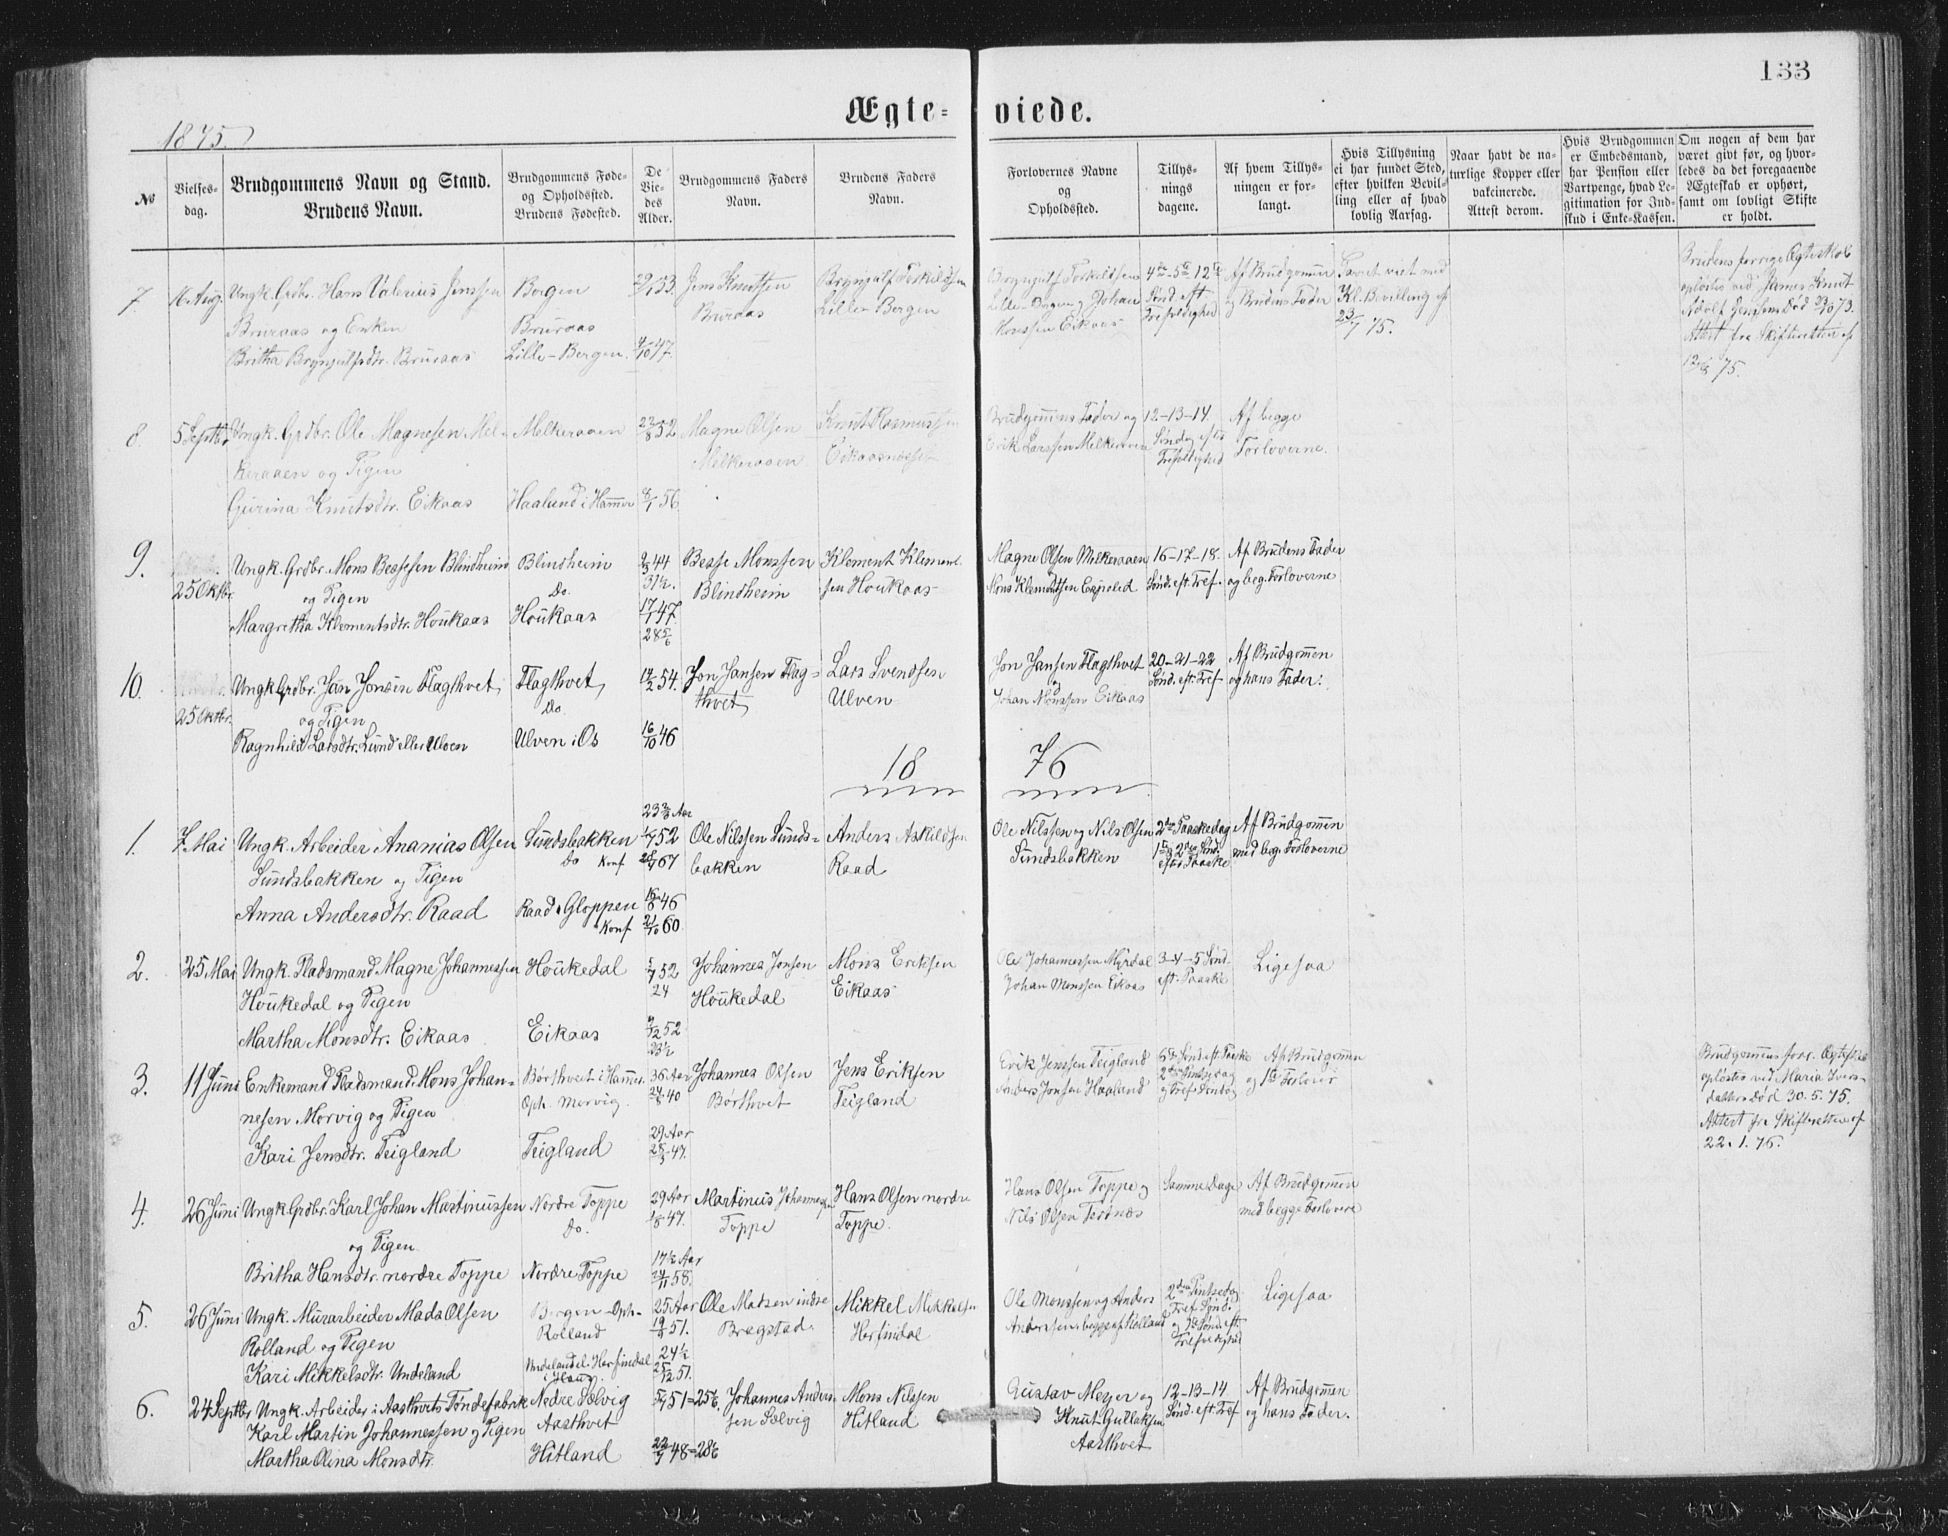 133
Ægte- viede.
1875.
№
Vielses-
dag.
Brudgommens Navn og Stand.
Brudens Navn.
Brudgommens Føde-
og Opholdssted.
Brudens Fødested.
De
Vie-
des
Alder.
Brudgommens Faders
Navn.
Brudens Faders
Navn.
Forlovernes Navne
og
Opholdssted.
Tillys-
nings
dagene.
Af hvem Tillys-
ningen er for-
langt.
Hvis Tillysning
ei har fundet Sted,
efter hvilken Bevil-
ling eller af hvad
lovlig Aarsag.
Naar havt de na-
turlige Kopper eller
vakcinerede.
Attest derom.
Hvis Brudgommen
er Embedsmand,
har Pension eller
Vartpenge, hvad Le-
gitimation for Ind-
skud i Enke-Kassen.
Om nogen af dem har
været givt før, og hvor-
ledes da det foregaaende
Ægteskab er ophørt,
samt om lovligt Skifte
er holdt.
7. 16 Aug. Ungk. Grdbr. Hans Valerius Jenssen
Bruraas og Enken
Britha Brynjulfsdtr. Bruraas
Bergen
Bruraas
Lille-Bergen.
29/1 33.
4/10 47.
Jens Knutsen
Bruraas
Brynjulf Torkildsen
Lille-Bergen
Brynjulf Torkildsen
Lille-Bergen og Johan
Monssen Eikaas
4de-5te 12te
Sønd. eft.
Trefoldighed
Af Brudgomen
og Brudens Fader
viet med
Kl. Bevilling af
23/7 75.
Brudens forrige Ægteskab
opløstes ved James Knut
Adolf Jensens Død 23/10 73.
Attest fra Skifteretten af
12/8 75.
8. 5 Septbr. Ungk. Grdbr. Ole Magnesen Mel-
keraaen og Pigen
Gurina Knutsdtr. Eikaas
Melkeraaen
Haaland i Hamer
23/8 52
8/1 56
Magne Olsen
Melkeraaen
Knut Rasmussen
Eikaasnesset
Brudgomens Fader og
Erik Larssen Melkeraaen
12-13-14
Søndag efter
Trefoldighed
Af begge
Forloverne.
9.
25 Oktbr.
Ungk. Grdbr. Mons Bessesen Blindheim
og Pigen
Margretha Klementsdtr. Houkaas
Blindheim
Do.
Houkaas
2/3 44
31½.
17/1 47.
28 5/6
Besse Monssen
Blindheim
Klement Klement-
sen Houkaas
Magne Olsen Melkeraaen
Mons Klementsen
16-17-18.
Sønd. eft. Tref.
Af Brudens Fader
og beg. Forloverne
10.
25 Oktbr.
Ungk. Grdbr. Jan Jonsen Flagthvet
og Pigen
Ragnhild Larsdtr. Lund eller Ulven
Flagthvet
Do
Ulven i Os
12/2 54.
16/10 46
Jon Jansen Flag-
thvet
Lars Svendsen
Ulven
Jon Jansen Flagthvet
og
Johan Monssen Eikaas
20-21-22
Sønd. eft. Tref
Af Brudgomen
og hans Fader.
18 76
1. 7 Mai Ungk. Arbeider Ananias Olsen
Sundsbakken og Pigen
Anna Andersdtr. Raad
Sundsbakken
Do Konf
Raad i Gloppen
Konf
52
67
46
21/10 60.
Ole Nilssen Sunds-
bakken
Anders Askildsen
Raad
Ole Nilssen og Nils Olsen
Sundsbakken
2den Paaskedag
1ste & 2den Sønd.
efter Paaske
Af Brudgomen
med beg. Forloverne
2. 25 Mai Ungk. Pladsmand Magne Johannessen
Houkedal og Pigen
Martha Monsdtr. Eikaas
Houkedal
Eikaas
52
24
9/12 52
23½
Johannes Jonsen
Houkedal
Mons Eriksen
Eikaas
Ole Johannessen Myrdal
Johan Monssen Eikaas
3-4-5 Sønd.
eft. Paaske
Ligesaa
3. 11 Juni Enkemand Pladsmand Mons Johan-
nesen Morvig og Pigen
Kari Jensdtr. Teigland
Børthveit i Hamer
Oph. Morvig.
Teigland
36 Aar
24/8 40
29 Aar
47.
Johannes Olsen
Børthvet
Jens Eriksen
Teigland
Erik Jenssen Teigland
Anders Jonsen Haaland
6te Sønd. eft. Paaske
2den Pintsedag
og Tref. Søndag
Af Brudgomen
og 1ste Forlover
Brudgomens forr. Ægteskab
opløstes ved Maria Ivers-
datters Død 30.5.75.
Attest fra Skifteretten af
22.1.76.
4. 26 Juni Ungk. Grdbr. Karl Johan Martinussen
og Pigen
Britha Hansdtr. nordre Toppe
Nordre Toppe
Do.
Nordre Toppe
29 Aar
1/8 47.
17½ Aar
24/11 58.
Martinus Johannessen
Toppe
Hans Olsen nordre
Toppe.
Hans Olsen Toppe og
Nils Olsen Tertnæs
Samme Dage
Af Brudgomen
med begge Forlovere
5. 26 Juni Ungk. Murarbeider Mads Olsen
Rolland og Pigen
Kari Mikkelsdtr. Undeland
Bergen - Oph.
Rolland
Undeland el. Herfindal
i Haug.
25 Aar
51.
24½
25/12 51.
Ole Matsen indre
Bregstad.
Mikkel Mikkelsen
Herfindal
Ole Monssen og Anders
Andersen, begge af Rolland
2den Pintsedag
Tref. Sønd.
og 1ste Sønd. eft.
Trefoldighed
Ligesaa
6. 24 Septbr. Ungk. Arbeider i Aasthvets Tøndefabrik
Karl Martin Johannessen og Pigen
Martha Olina Monsdtr.
Nedre Sælvig
Aasthvet
Hitland
51=25
22/7 48=28
Johannes Ander-
sen Sælvig
Mons Nilssen
Hitland
Gustav Meyer og
Knut Gullaksen
Aasthvet
12-13-14
Sønd. eft. Tref
Af Brudgomen
og hans Fader.